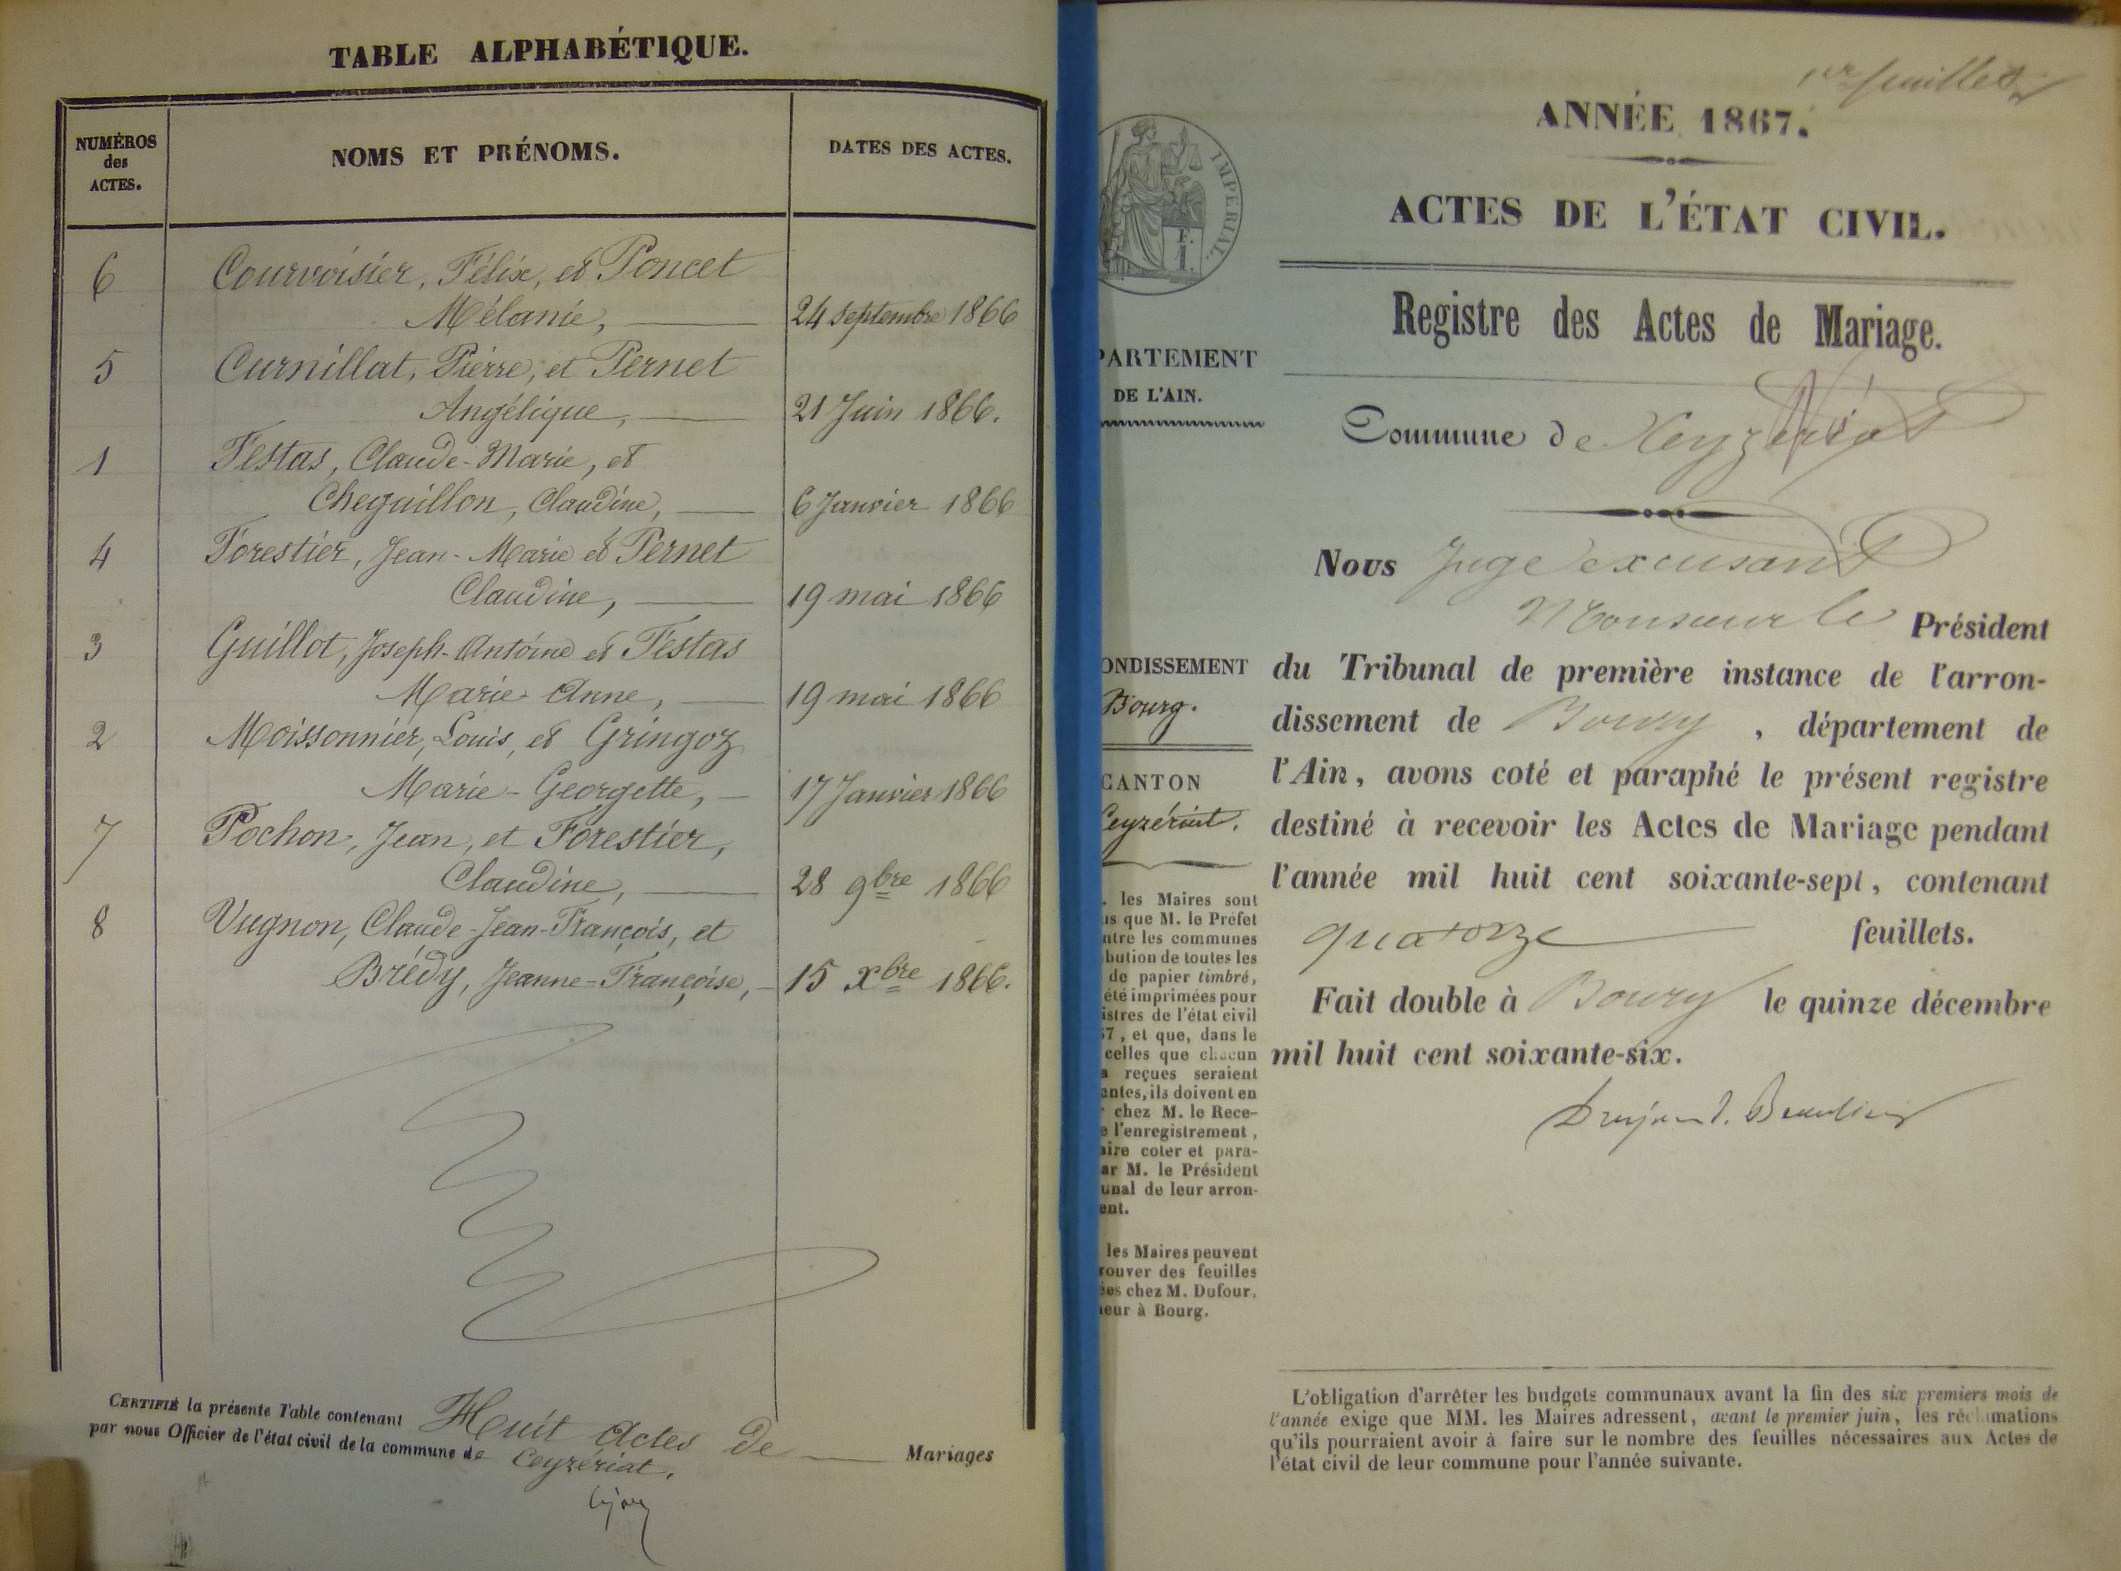 TABLE ALPHABÉTIQUE.
NUMÉROS
des
ACTES.
NOMS ET PRÉNOMS.
DATES DES ACTES.
6 Courvoisier, Félix, et Poncet
Mélanie, 24 septembre 1866
5 Curnillat, Pierre, et Pernet
Angélique, 21 Juin 1866.
1 Festas, Claude-Marie, et
Cheguillon, Claudine, 6 Janvier 1866
4 Forestier, Jean-Marie et Pernet
Claudine, 19 mai 1866
3 Guillot, Joseph-Antoine et Festas
Marie-Anne, 19 mai 1866
2 Moissonnier, Louis, et Gringoz
Marie-Georgette, 17 Janvier 1866
7 Pochon, Jean, et Forestier,
Claudine, 28 9bre 1866
8 Vugnon, Claude-Jean-François, et
Brédy, Jeanne-Françoise, 15 Xbre 1866.
CERTIFIÉ la présente Table contenant Huit Actes de Mariages
par nous Officier de l'état civil de la commune de Ceyzeriat.
1er feuillet
ANNÉE 1867.
IMPERIAL.
F.
1.
ACTES DE L'ÉTAT CIVIL.
Registre des Actes de Mariage.
PARTEMENT
DE L'AIN.
Commune de Ceyzériat
Nous Juge excusant
Monsieur le Président
ONDISSEMENT
Bourg.
CANTON
Ceyzériat.
du Tribunal de première instance de l'arron-
dissement de Bourg, département de
l'Ain, avons coté et paraphé le présent registre
destiné à recevoir les Actes de Mariage pendant
l'année mil huit cent soixante-sept, contenant
quatorze feuillets.
Fait double à Bourg le quinze décembre
mil huit cent soixante-six.
. les Maires sont
us que M. le Préfet
ntre les communes
bution de toutes les
de papier timbré,
été imprimées pour
istres de l'état civil
67, et que, dans le
celles que chacun
a reçues seraient
antes, ils doivent en
r chez M. le Rece-
e l'enregistrement,
aire coter et para-
ar M. le Président
unal de leur arron-
ent.
les Maires peuvent
rouver des feuilles
ées chez M. Dufour,
neur à Bourg.
L'obligation d'arrêter les budgets communaux avant la fin des six premiers mois de
l'année exige que MM. les Maires adressent, avant le premier juin, les réclamations
qu'ils pourraient avoir à faire sur le nombre des feuilles nécessaires aux Actes de
l'état civil de leur commune pour l'année suivante.